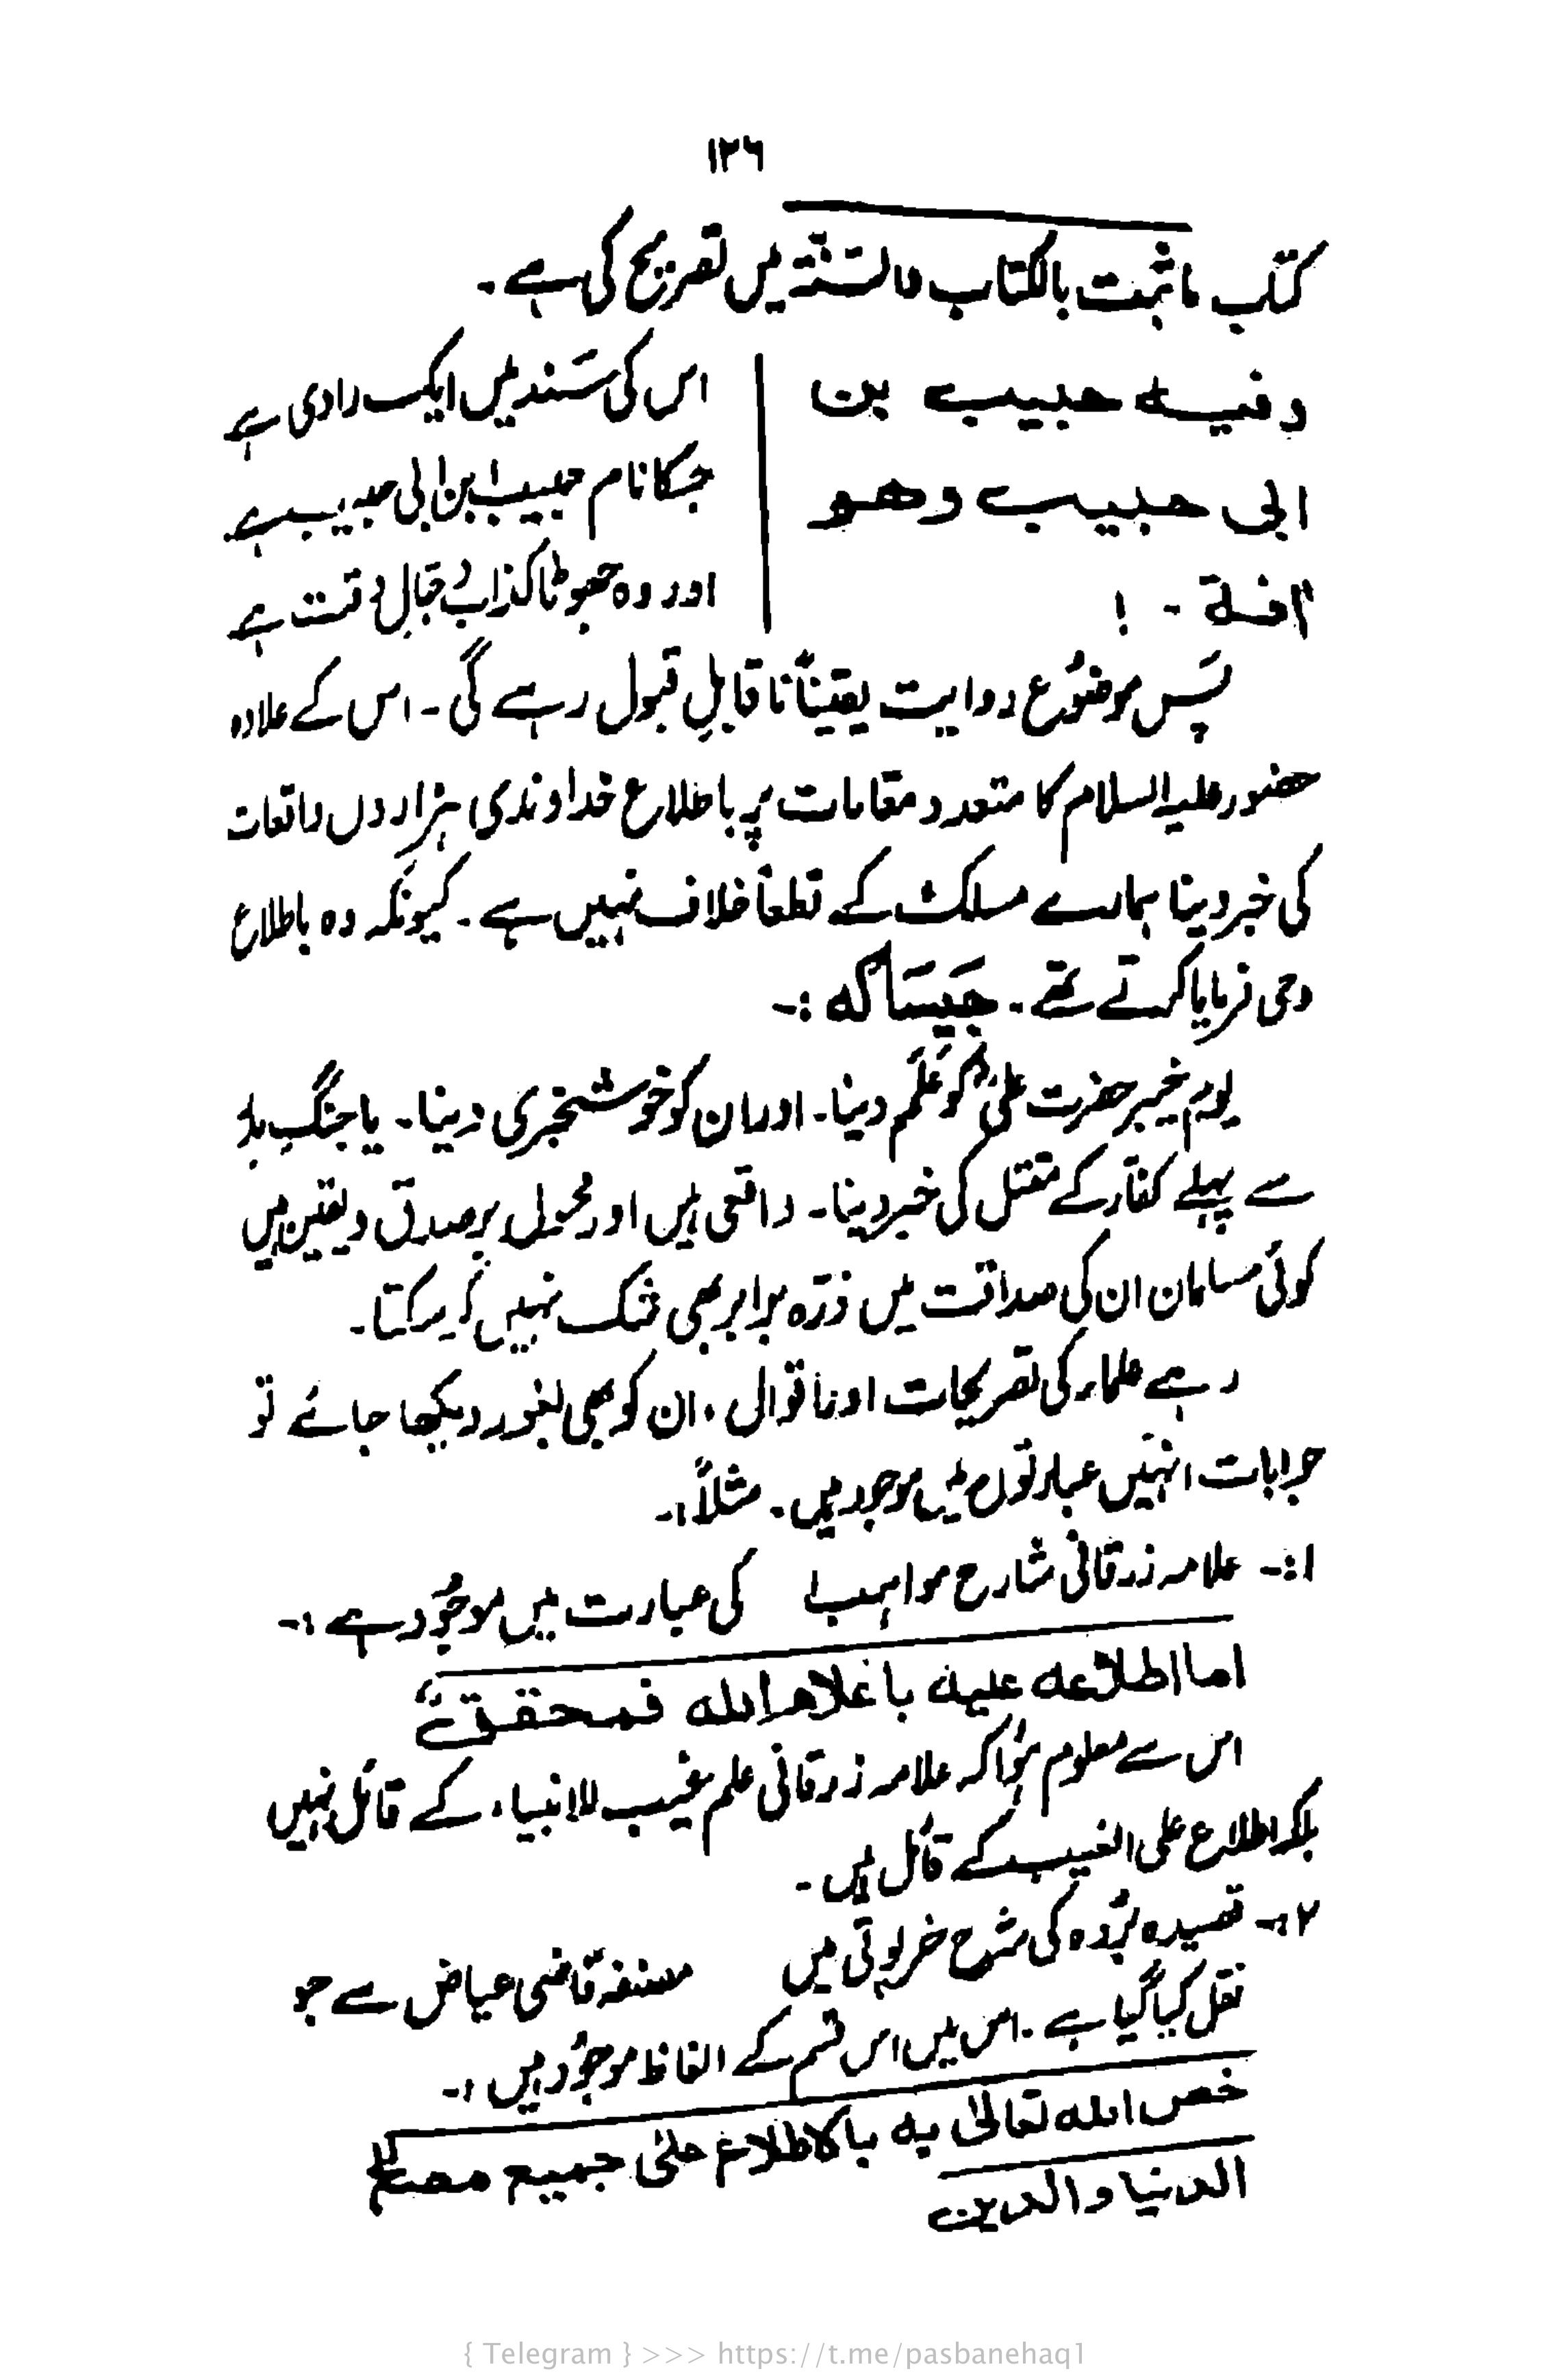 ۱۳۶
کتب ماثبت بالکتاب والسُّنّۃ میں تصریح کی ہے۔
وفیه حبیب بن
ابی حبیب وھو
آفة -!
اس کی سَند میں ایک راوی ہے
جسکا نام حبیب ابن ابی حبیب ہے
اور وہ جھوٹا کذاب دجّال وقت ہے
پَس موضوُع روایت یقیناً ناقابلِ قبول رہے گی۔ اس کے علاوہ
حضور علیہ السلام کا متعدد مقامات پر باطلاع خداوندی ہزاروں واقعات
کی خبر دینا ہمارے مسلک کے قطعاً خلاف نہیں ہے۔ کیونکہ وہ باطلاع
وحی فرمایا کرتے تھے۔ جَیسَا کہ :-
یوم خیبر حضرت علیؓ کو عَلَم دینا۔ اور ان کو خوشخبری دینا۔ یا جنگ بدر
سے پہلے کفّار کے مقتل کی خبر دینا۔ واقعی ہیں اور محمول بر صدق ویقین ہیں
کوئی مسلمان ان کی صداقت میں ذرّہ برابر بھی شک نہیں کر سکتا۔
رہے علماء کی تصریحات اور اقوال، ان کو بھی بغور دیکھا جائے تو
جوابات انہیں عبارتوں میں موجود ہیں۔ مثلاً:-
۱:- علامہ زرقانی شارح مواہب کی عبارت میں موجُود ہے :-
اما اطلاعه علیه باعلام الله فمحقق
اس سے معلوم ہوُا کہ علامہ زرقانی علم غیب للانبیاء کے قائل نہیں
بلکہ اطلاع علی الغیب کے قائل ہیں۔
۲:- قصیدہ بُردہ کی شرح خرپوتی میں مسنفہ قاضی عیاض سے جو
نقل کیا گیا ہے۔ اس میں اس قسم کے الفاظ موجوُد ہیں :-
خص الله تعالیٰ به بالاطلاع علیٰ جمیع مصالح
الدنیا والدین
{ Telegram } >>> https://t.me/pasbanehaq1